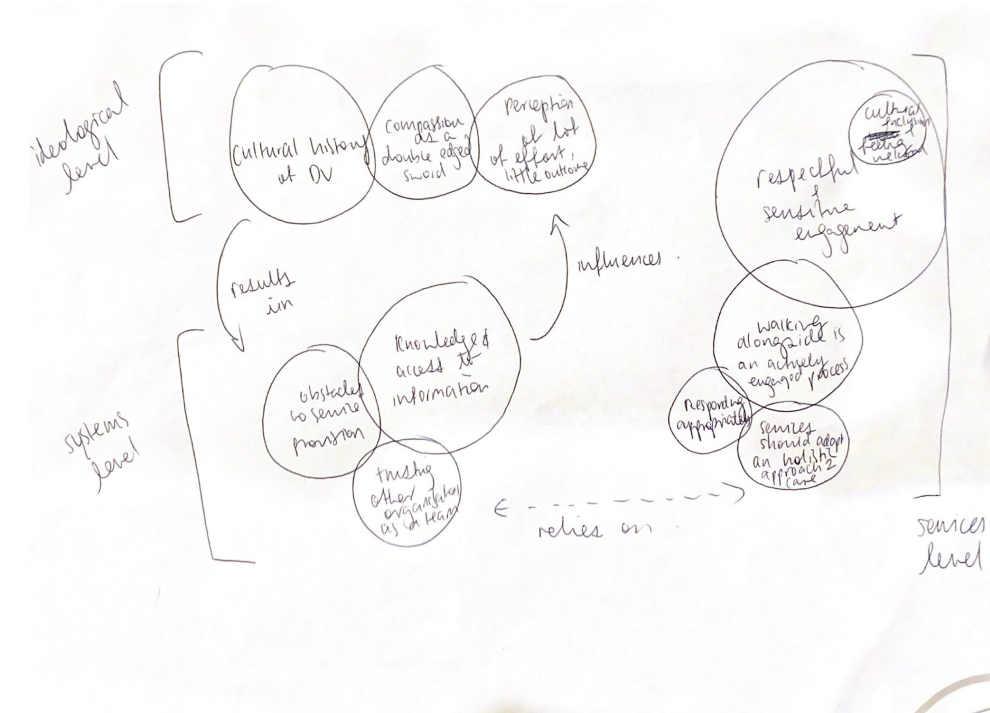 ideological
level
cultural history
of DV
compassion
as a
double edged
sword
perception
of lot
of effort,
little outcome
results
in
influences.
systems
level
obstacles
to service
provision
Knowledge &
access to
information
trusting
other
organisations
as a team
relies on.
cultural
inclusion
&
feeling
included
respectful
&
sensitive
engagement
walking
alongside is
an actively
engaged process
Responding
appropriately
services
should adopt
an holistic
approach 2
care
services
level